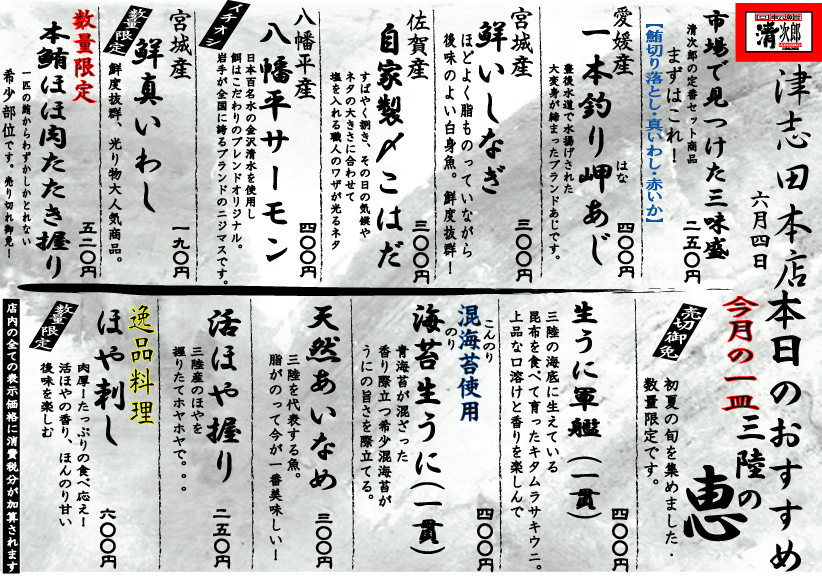 清次郎
津志田本店
六月四日
本日のおすすめ
市場で見つけた三味盛
清次郎の定番セット商品
まずはこれ！
二五〇円
【鮪切り落とし・真いわし・赤いか】
愛媛産
一本釣り岬あじ
はな
豊後水道で水揚げされた
大変身が締まったブランドあじです。
四〇〇円
宮城産
鮮いしなぎ
ほどよく脂ものっていながら
後味のよい白身魚。鮮度抜群！
三〇〇円
佐賀産
自家製〆こはだ
すばやく捌き、その日の気候や
ネタの大きさに合わせて
塩を入れる職人のワザが光るネタ
三〇〇円
八幡平産
八幡平サーモン
イチオシ
日本百名水の金沢清水を使用し
餌はこだわりのブレンドオリジナル。
岩手が全国に誇るブランドのニジマスです。
四〇〇円
宮城産
鮮真いわし
数量限定
鮮度抜群、光り物大人気商品。
一九〇円
数量限定
本鮪ほほ肉たたき握り
一匹の鮪からわずかしかとれない
希少部位です。売り切れ御免！
五二〇円
今月の一皿
三陸の
恵
売切御免
初夏の旬を集めました・
数量限定です。
生うに軍艦（一貫）
三陸の海底に生えている
昆布を食べて育ったキタムラサキウニ。
上品な口溶けと香りを楽しんで
四〇〇円
混海苔使用
こんのり
海苔生うに（一貫）
のり
青海苔が混ざった
香り際立つ希少混海苔が
うにの旨さを際立てる。
四〇〇円
天然あいなめ
三陸を代表する魚。
脂がのって今が一番美味しい！
三〇〇円
活ほや握り
三陸産のほやを
握りたてホヤホヤで。。。
二五〇円
逸品料理
ほや刺し
数量限定
肉厚！たっぷりの食べ応え！
活ほやの香り、ほんのり甘い
後味を楽しむ
六〇〇円
店内の全ての表示価格に消費税分が加算されます